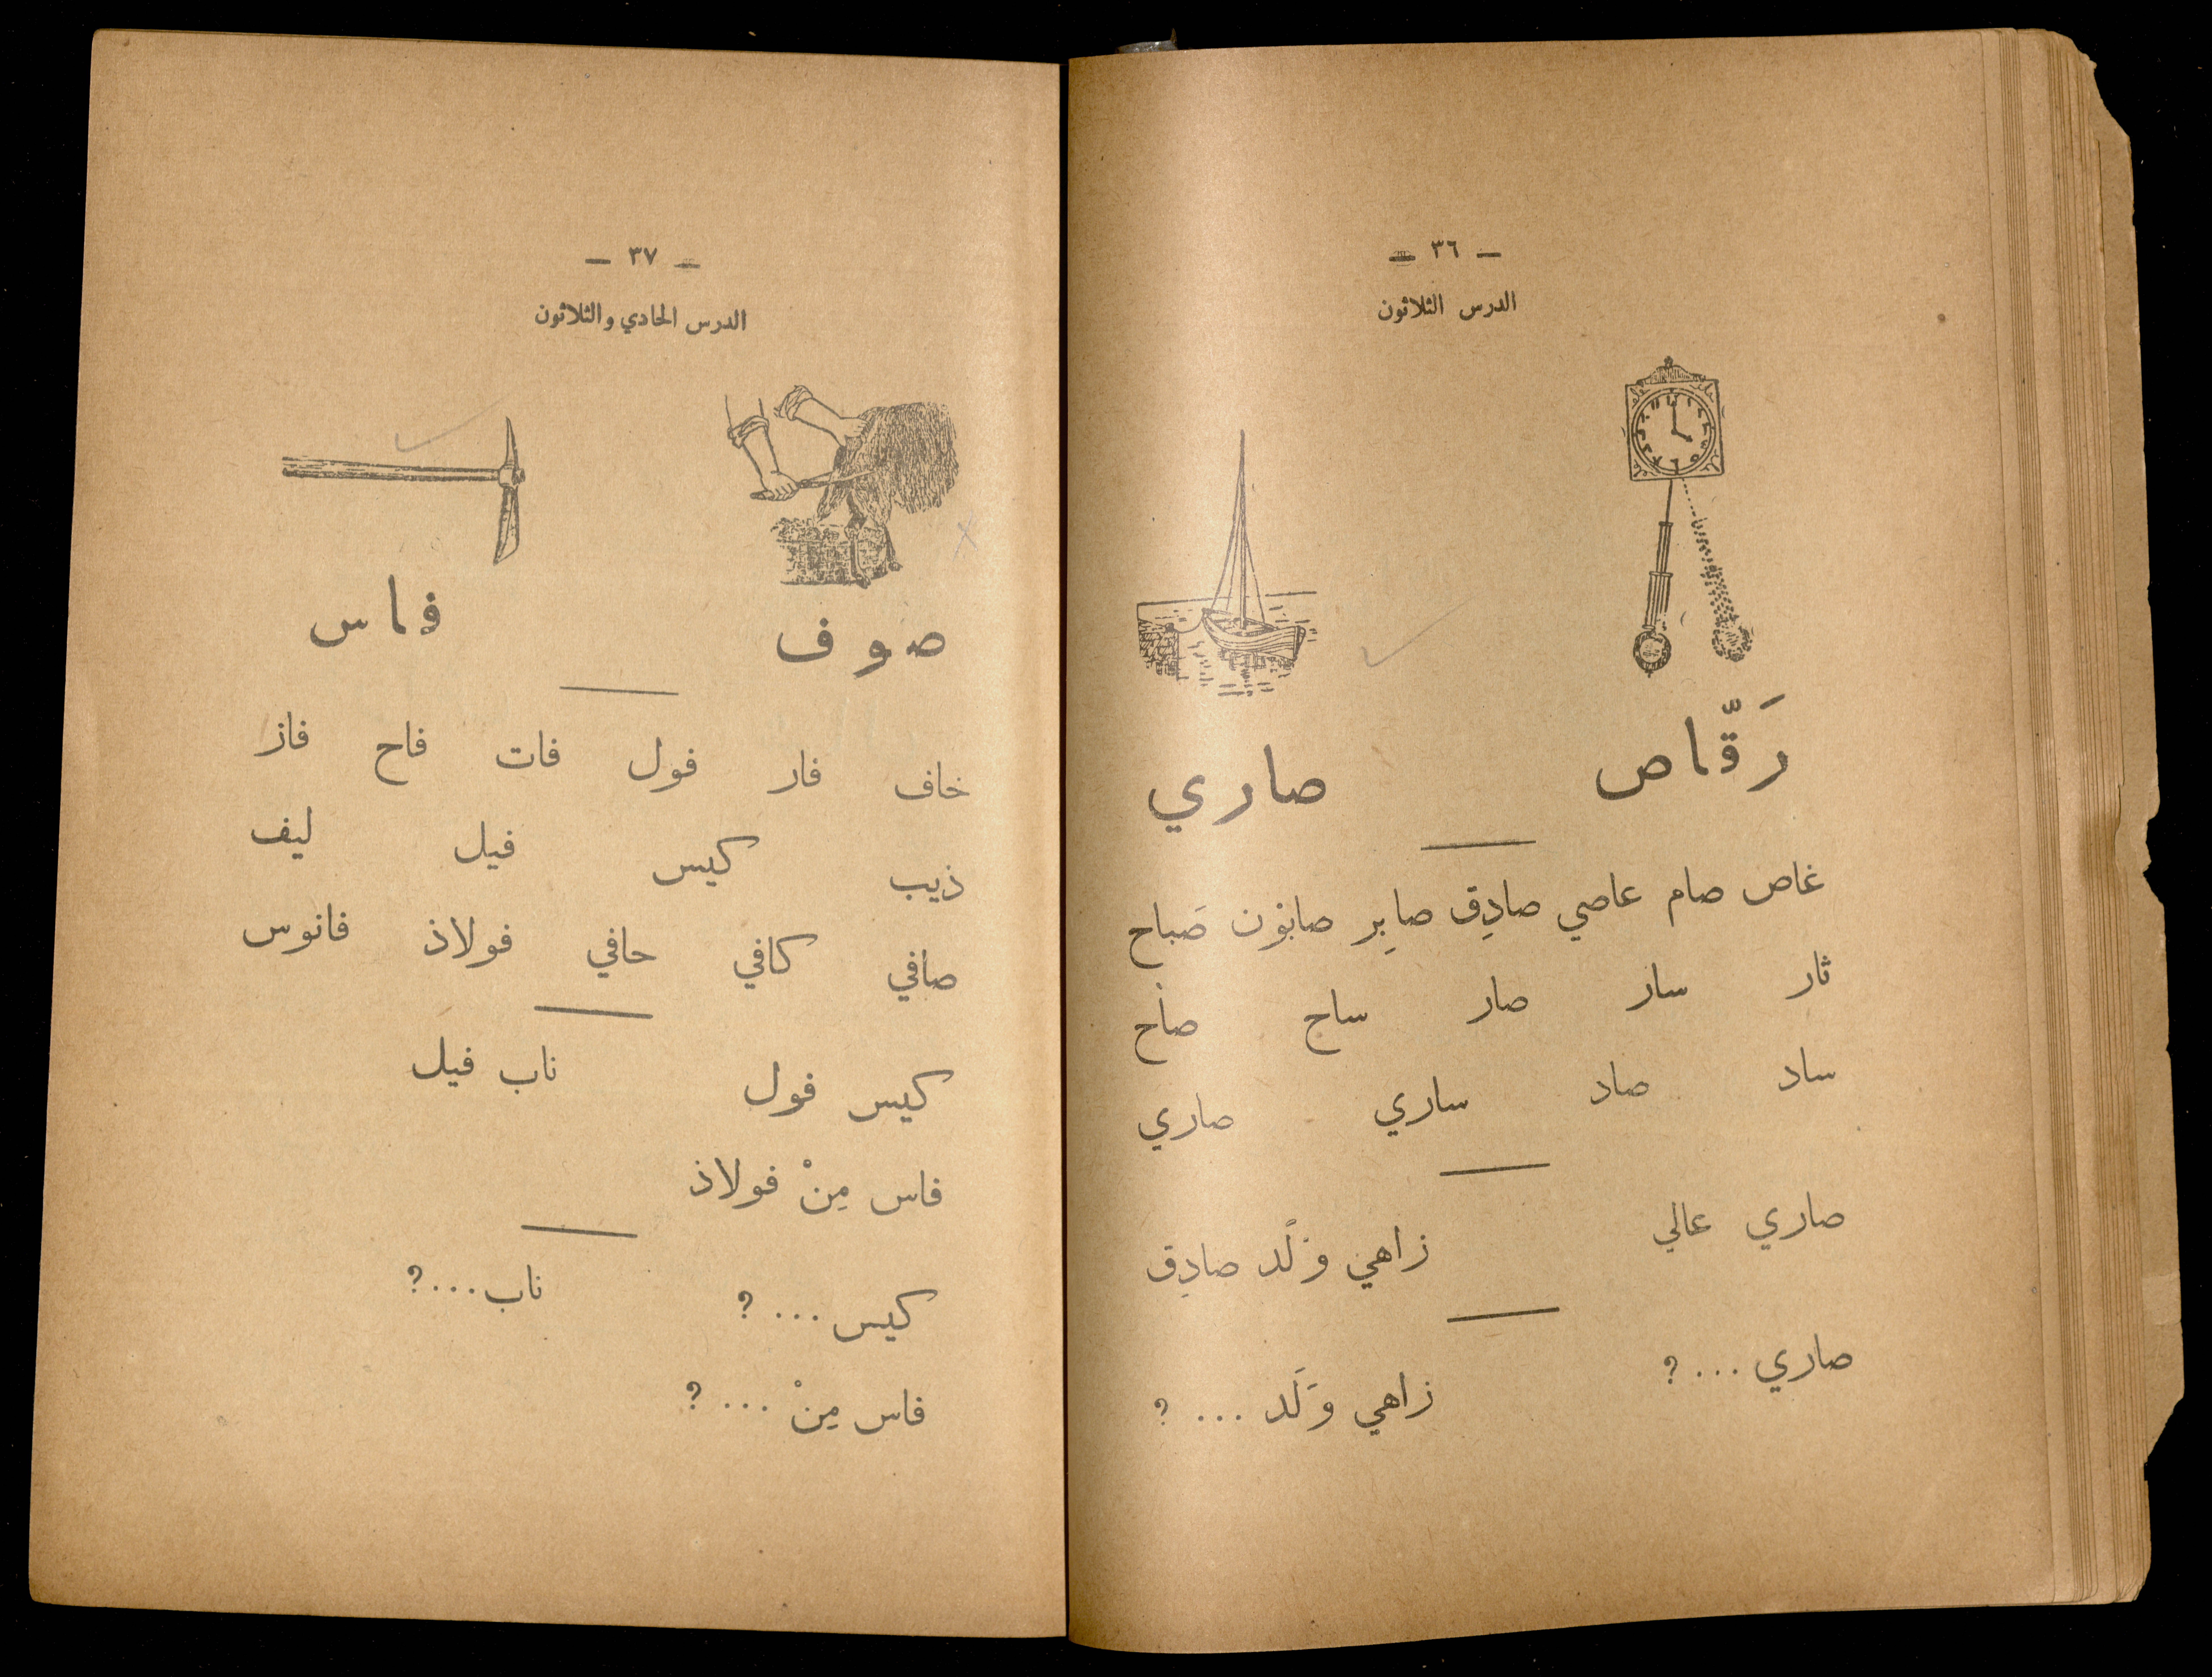 — ٣٦ —
الدرس الثلاثون
رَقّاص صاري
غاص صام عاصي صادِق صابِر صابون صَباح
ثار سار صار ساح صاح
ساد صاد ساري صاري
صاري عالي زاهي وَلَد صادِق
صاري ... ? زاهي وَلَد ... ?
— ٣٧ —
الدرس الحادي والثلاثون
صوف فاس
خاف فار فول فات فاح فاز
ذيب كيس فيل ليف
صافي كافي حافي فولاذ فانوس
كيس فول ناب فيل
فاس مِنْ فولاذ
كيس ... ? ناب ... ?
فاس مِنْ ... ?